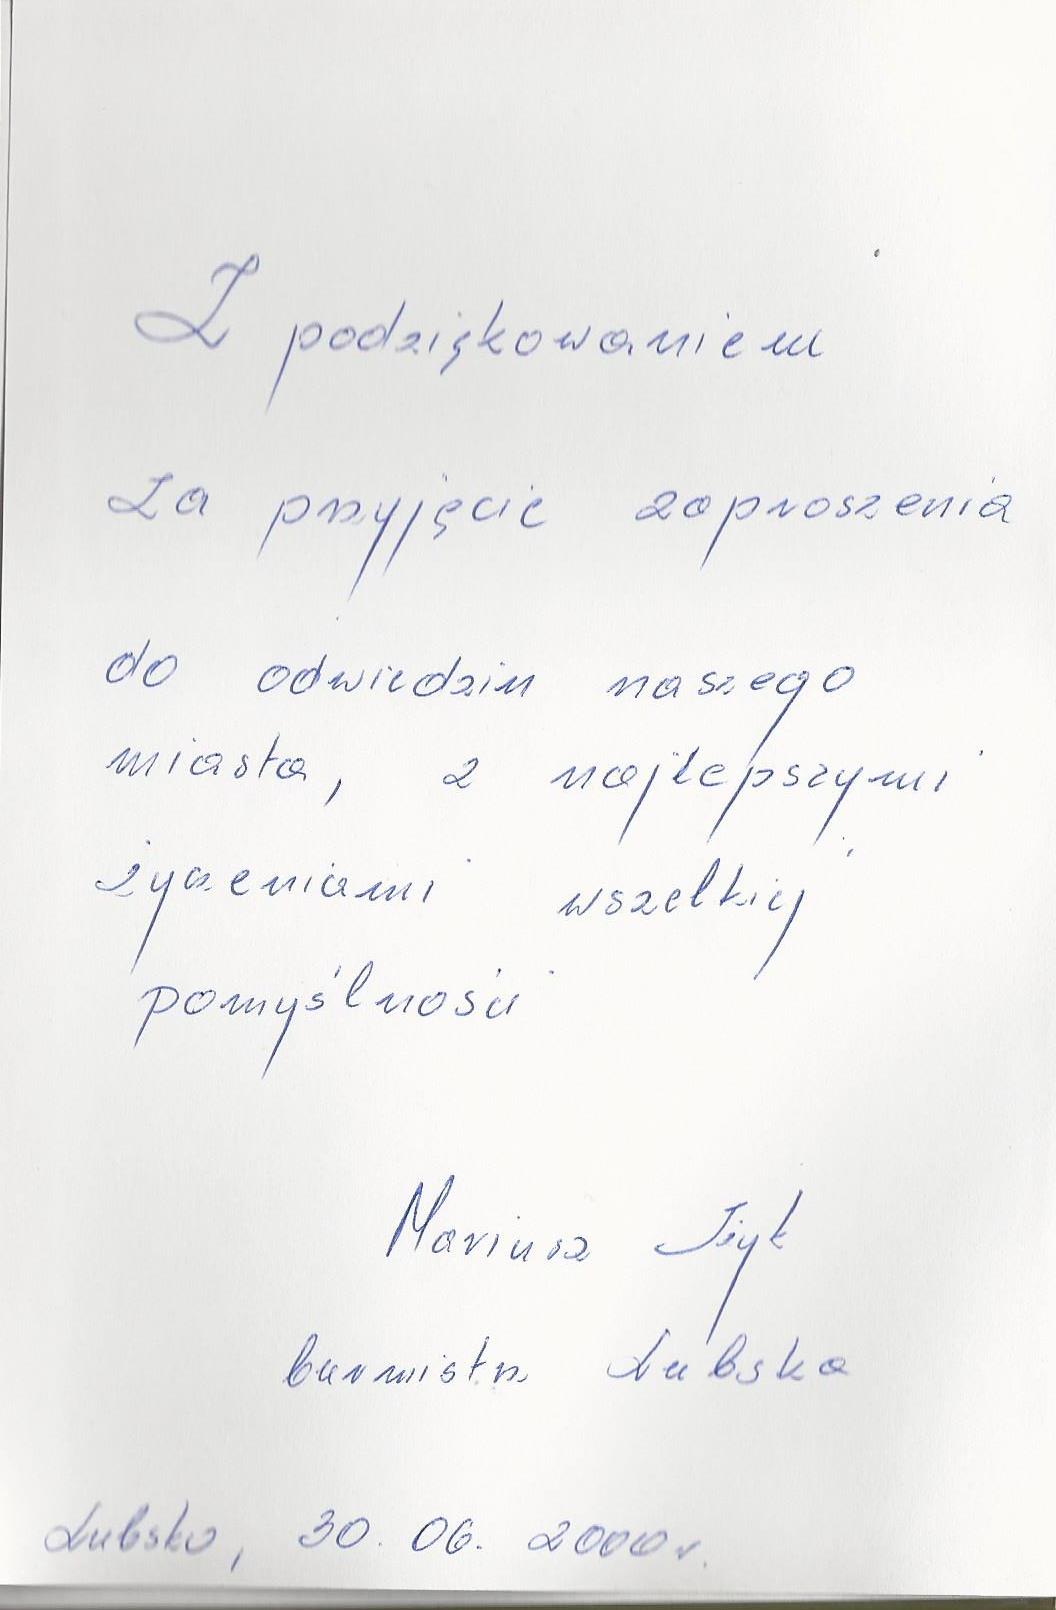 Z podziękowaniem
za przyjęcie zaproszenia
do odwiedzin naszego
miasta, z najlepszymi
życzeniami wszelkiej
pomyślności
Mariusz
burmistrz Lubska
Lubsko, 30. 06. 2000 r.